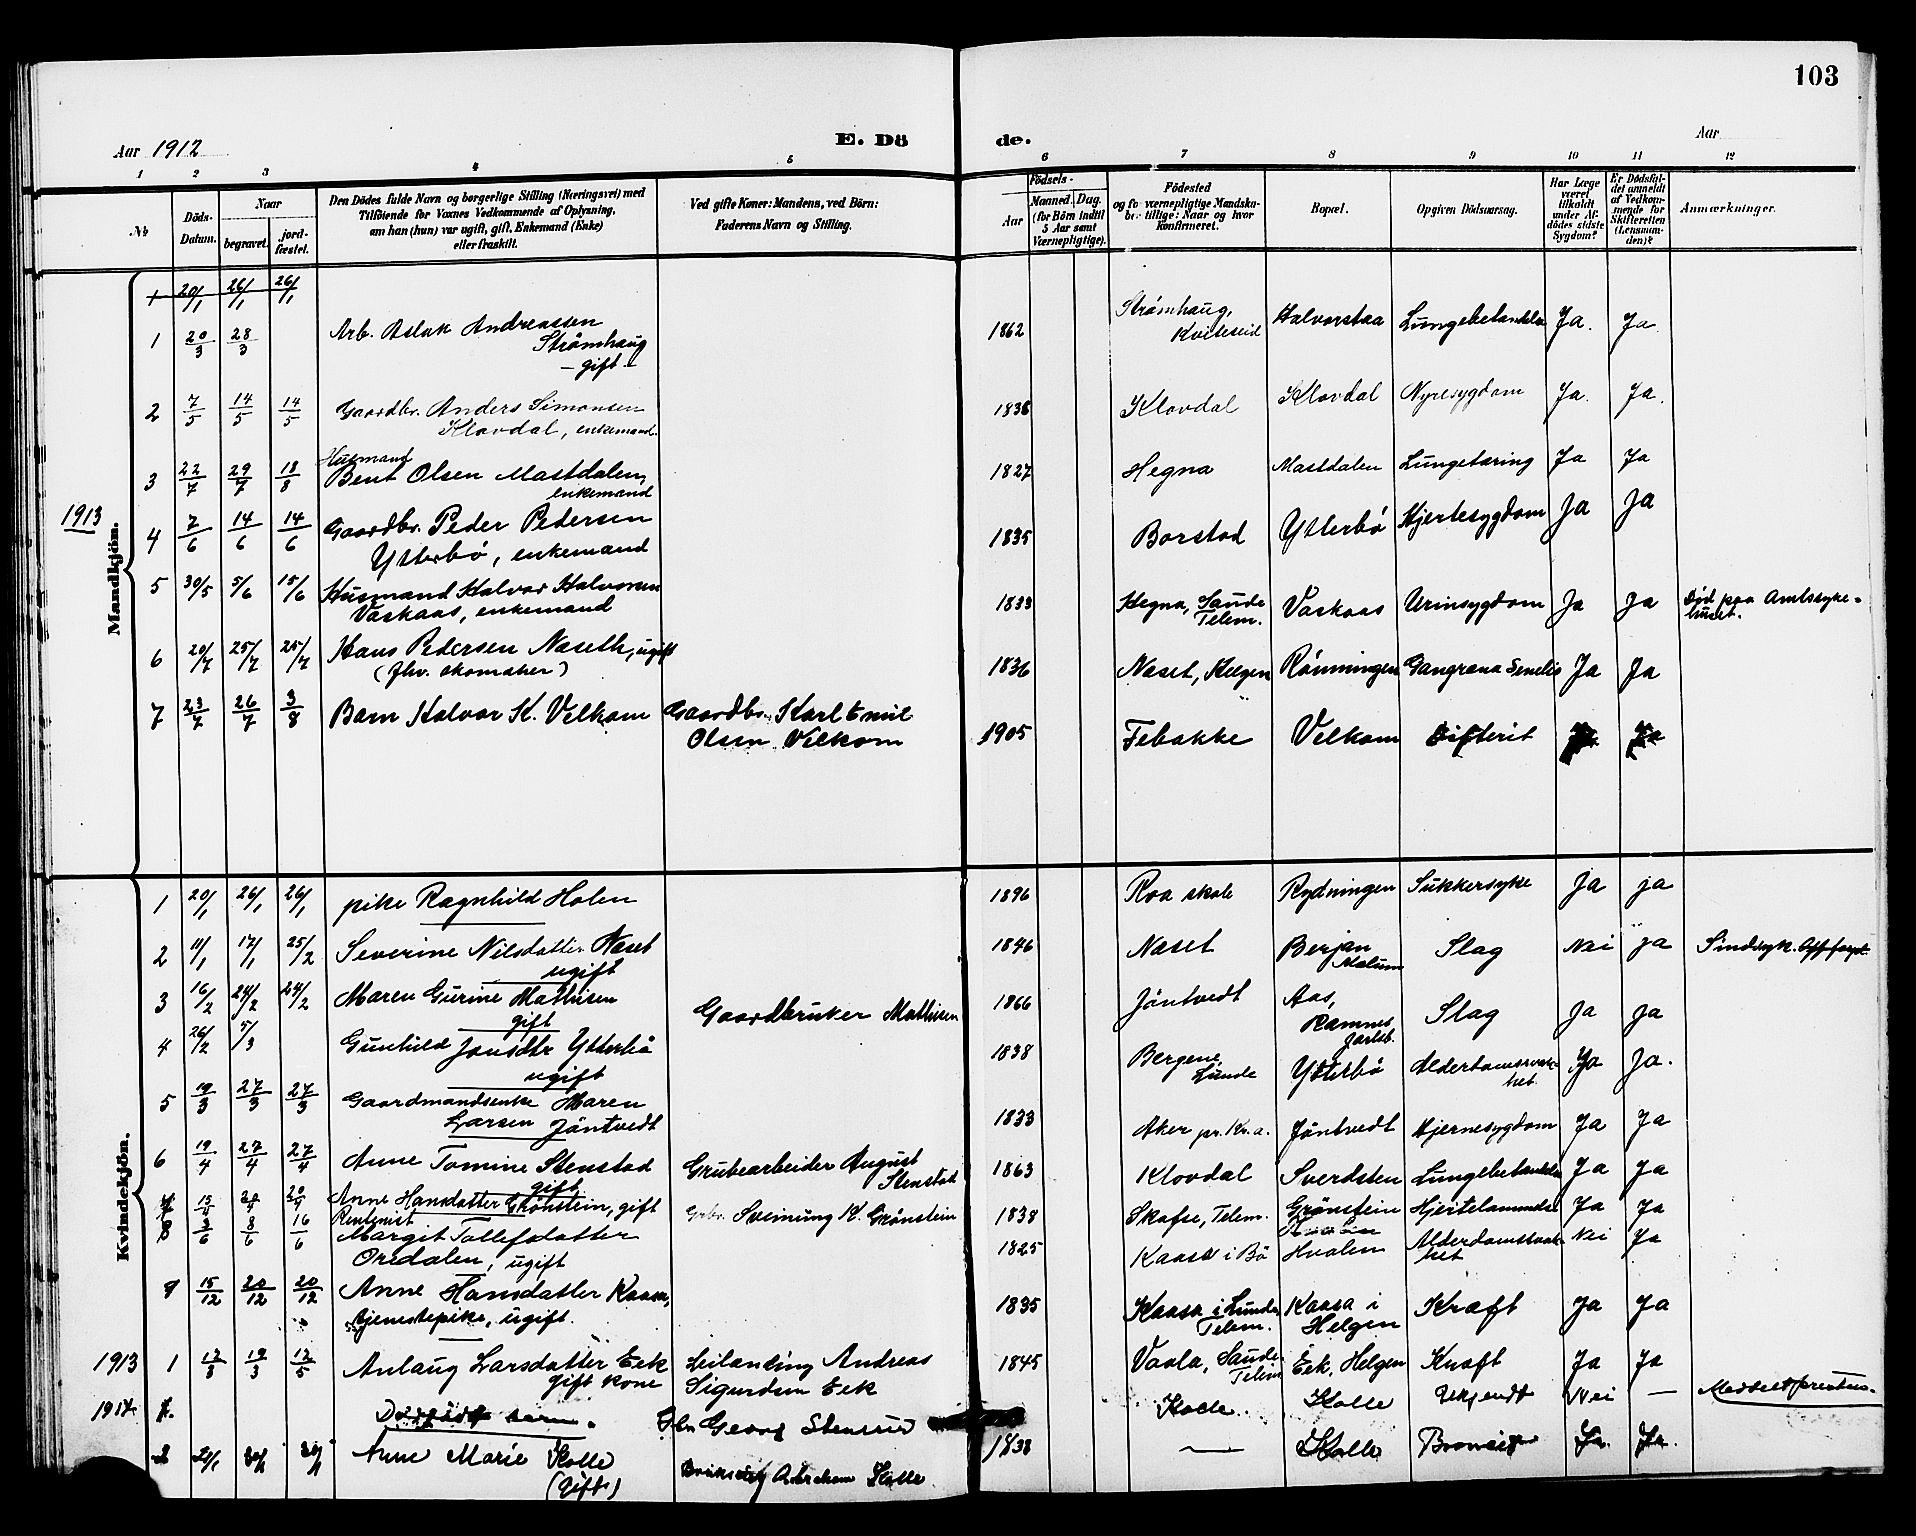 103
Aar 1912
E. Dö
de.
Aar
1 2 3 4 5 6 7 8 9 10 11 12
№
Döds-Datum.
Naar
begravet.
jord-fæstet.
Den Dödes fulde Navn og borgerlige Stilling (Næringsvei) med
Tilföiende for Voxnes Vedkommende af Oplysning,
om han (hun) var ugift, gift, Enkemand (Enke)
eller fraskilt.
Ved gifte Koner: Mandens, ved Börn:
Faderens Navn og Stilling.
Födsels-
Aar
Maaned. Dag.
(for Börn indtil
5 Aar samt
Værnepligtige).
Födested
og for værnepligtige Mandska-
br. tillige: Naar og hvor
konfirmeret.
Bopæl.
Opgiven Dödsaarsag.
Har Læge
været
tilkaldt
under Af-
dödes sidste
Sygdom?
Er Dödsfal-
det anmeldt
af Vedkom-
mende for
Skifteretten
(Lensman-
den)?
Anmærkninger.
Mandkjön.
1 20/1 26/1 26/1
1 20/3 28/3 Arb. Aslak Andreassen
Strømhaug
- gift - 1862 Strømhaug,
Kviteseid Halvorstaa Lungebetændelse Ja. Ja.
2 7/5 14/5 14/5 Gaardbr. Anders Simonsen
Klovdal, enkemand. 1836 Klovdal Klovdal Nyresygdom Ja. Ja.
3 22/7 29/7 18/8 Husmand
Bent Olsen Mastdalen,
enkemand 1827 Hegna Mastdalen Lungetæring Ja Ja
1913
4 7/6 14/6 14/6 Gaardbr. Peder Pedersen
Ytterbø, enkemand 1835 Borstad Ytterbø Hjertesygdom Ja Ja
5 30/5 5/6 15/6 Husmand Halvor Halvorsen
Vaskaas, enkemand 1833 Hegna, Saude
Telem. Vaskaas Urinsygdom Ja Ja Død paa Amtssyke-
huset.
6 20/7 25/7 25/7 Hans Pedersen Naseth, ugift
(fhv. skomaker) 1836 Naset, Helgen Rønningen Gangræna Senelis Ja Ja
7 23/7 26/7 3/8 Barn Halvor K. Velkom Gaardbr. Karl Emil
Olsen Velkom 1905 Febakke Velkom Difterit Ja
Kvindekjön.
1 20/1 26/1 26/1 pike Ragnhild Holen 1896 Roa skole Rydningen Sukkersyke Ja ja
2 11/1 17/1 25/2 Severine Nilsdatter Naset
ugift 1846 Naset Berjan
Melum Slag Nei ja Sindsyk.
3 16/2 24/2 24/2 Maren Gurine Mathisen
gift Gaardbruker Mathisen 1866 Jöntvedt Aas,
Ramnes
Jarlsb. Slag Ja Ja
4 26/2 5/3 Gunhild Jonsdtr Ytterbö
ugift 1838 Bergene
Lunde Ytterbö Alderdomssvak-
het. Ja Ja.
5 19/3 27/3 27/3 Gaardmandsenke Maren
Larsen Jöntvedt 1833 Aker pr. Kr.a. Jöntvedt Hjernesygdom Ja Ja
6 19/4 27/4 27/4 Anne Tomine Stenstad
gift Grubearbeider August
Stenstad 1863 Klovdal Sverdsten Lungebetændelse Ja Ja
15/4 20/4 20/4 Anne Hansdatter Grønstein, gift Grbr. Sveinung K. Grønstein 1838 Skafse, Telem. Grønstein Hjertelammelse Ja Ja
8 3/6 8/6 16/6 Rentenist
Margit Tollefsdatter
Oredalen, ugift 1825 Kaasa i Bö Hvalen Alderdomssvak-
het Nei Ja
9 15/12 20/12 20/12 Anne Hansdatter Kaasa,
tjenestepike, ugift. 1835 Kaasa i Lunde,
Telem. Kaasa i
Helgen Kræft Ja Ja
1913 1 12/3 19/3 12/5 Anlaug Larsdatter Eek
gift kone Leilænding Andreas
Sigurdsen Eek 1845 Vaala, Saude
Telem Eek, Helgen Kræft Ja Ja
1914 1. Dødfødt barn. Georg Stensrud Kolle. Kolle Ukjendt Nei —
2 Anne Marie Kolle
(Gift) Abraham Kolle 1838 — Kolle Ja. Ja.